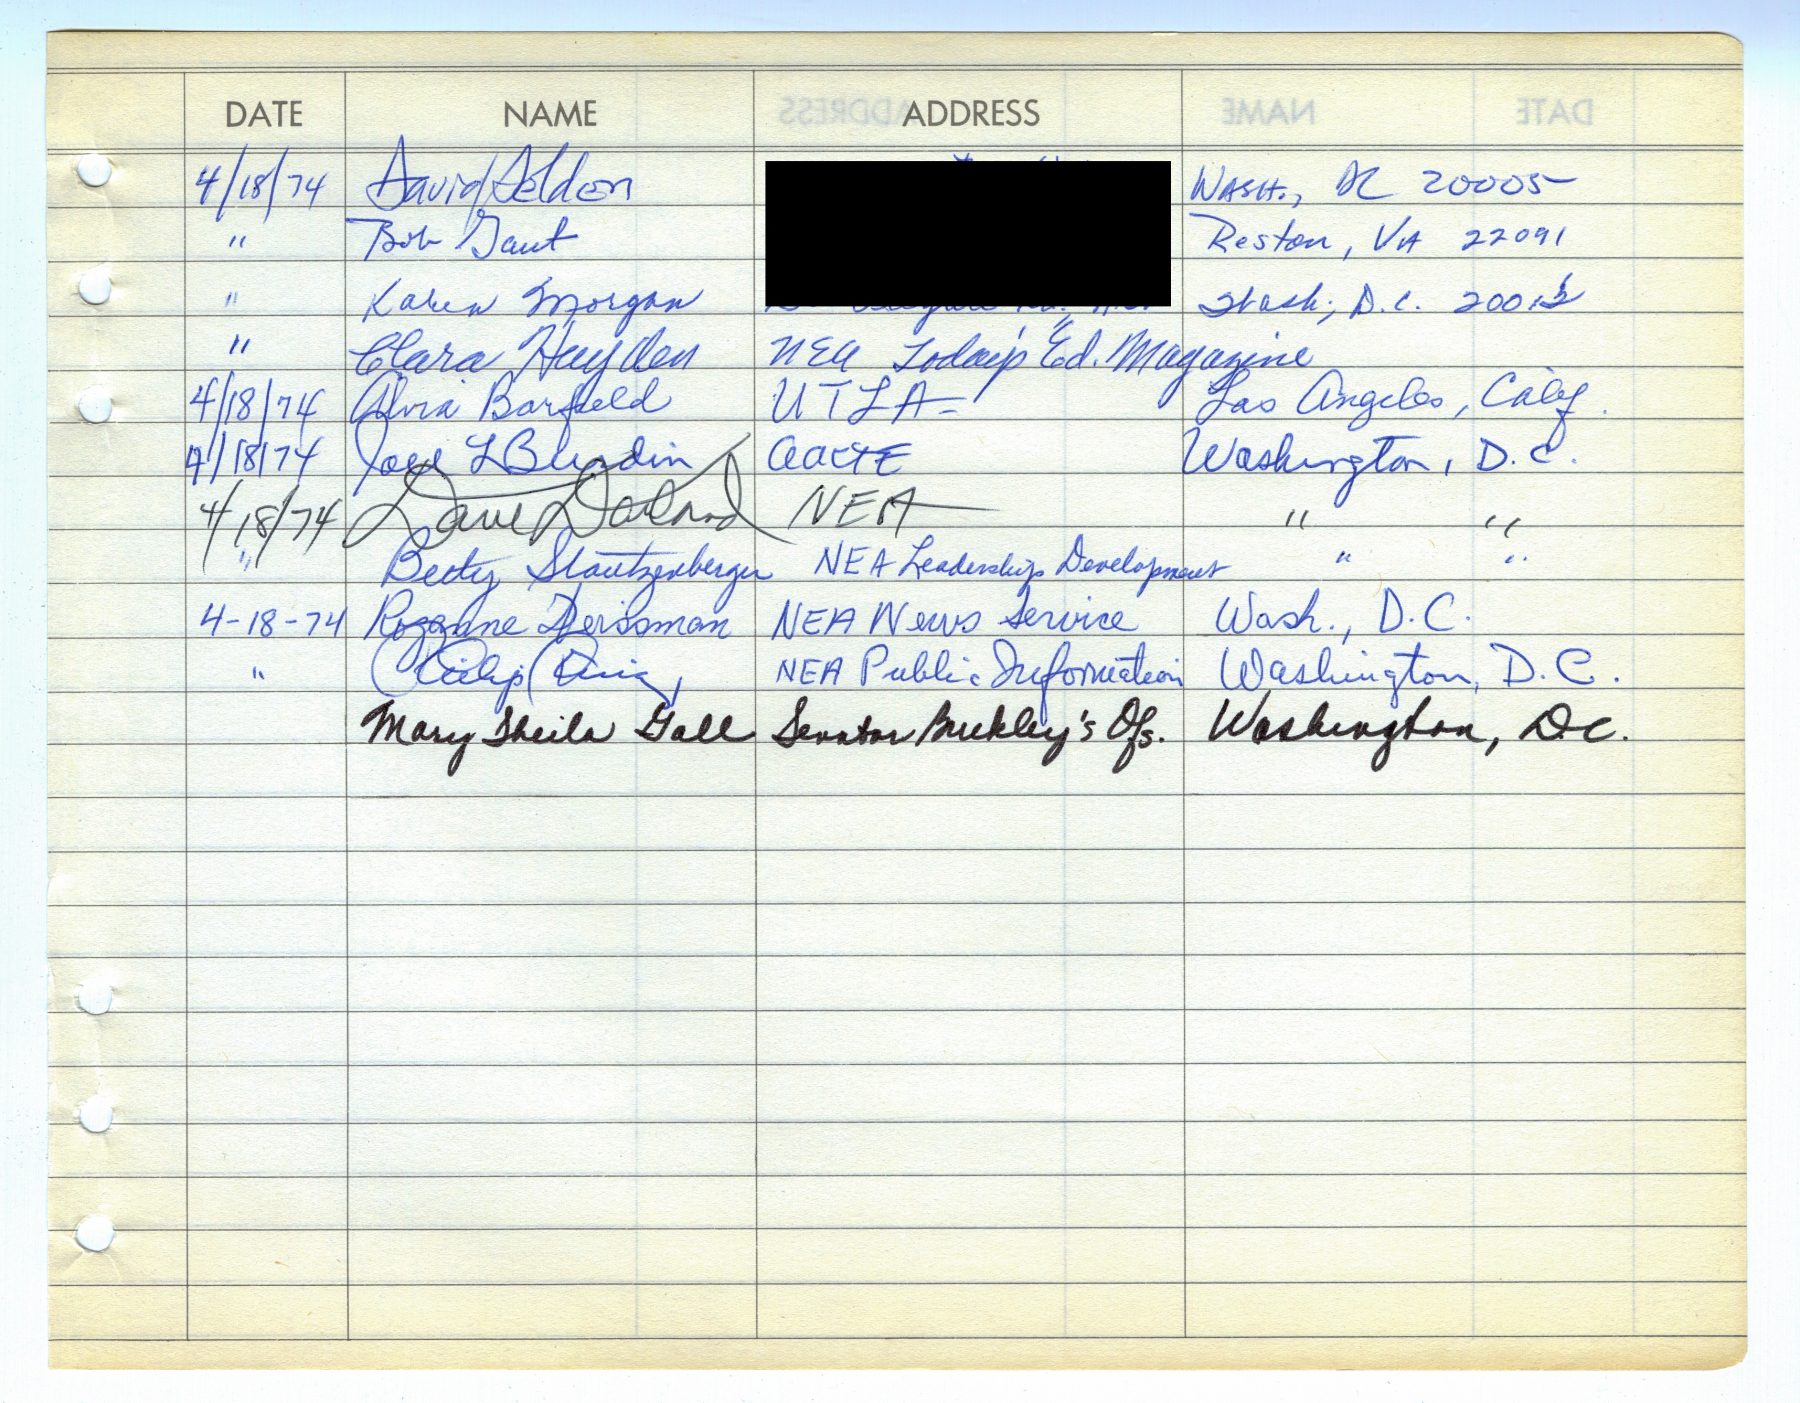 DATE NAME ADDRESS
4/18/74 David Selden Wash., DC 20005
" Bob Gaut Reston, VA 22091
" Karen Morgan Wash, D.C.
" Clara Hayden NEA Today's Ed. Magazine
4/18/74 Alvia Barfield UTLA - Los Angeles, Calif.
4/18/74 L AACTE Washington, D.C.
4/18/74 Dave NEA " "
" Betty Stautzenberger NEA Leadership Development " "
4-18-74 Rozanne Weissman NEA News Service Wash., D.C.
" Philip NEA Public Information Washington, D.C.
Mary Sheila Gall Senator Buckley's Ofs. Washington, D.C.